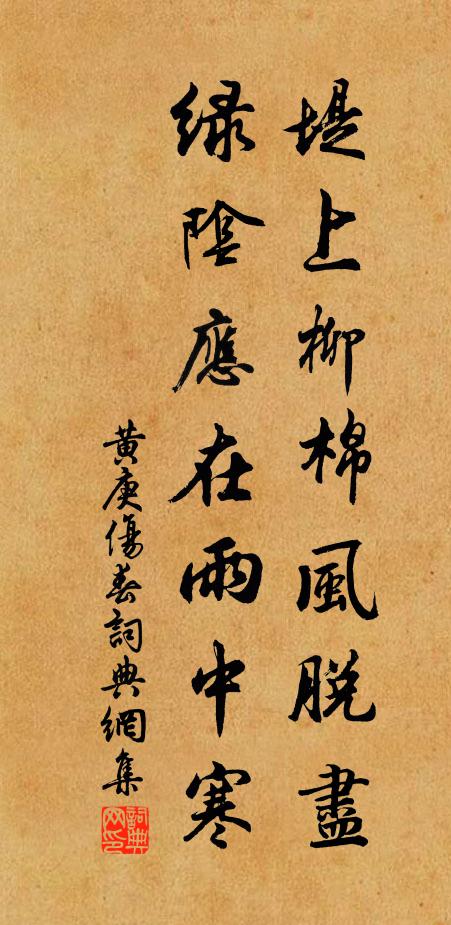 堤上柳棉風脫盡
綠陰應在雨中寒
黃庚傷春詞典網集
詞典網印